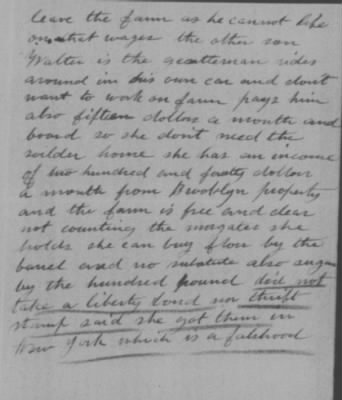 leave the farm as he cannot live
on that wages the other son
Walter is the geatteman rides
around in his own car and dont
want to work on farm pays him
also fifteen dollars a month and
board so she dont need the
soilder home she has an income
of two hundred and foaty dollars
a month from Brooklyn property
and the farm is free and clear
not counting the morgates she
holds she can buy flour by the
barel and no subitute also sugar
by the hundred pound did not
take a liberty bond nor thrift
stamp said she got them in
New York which is a falshood